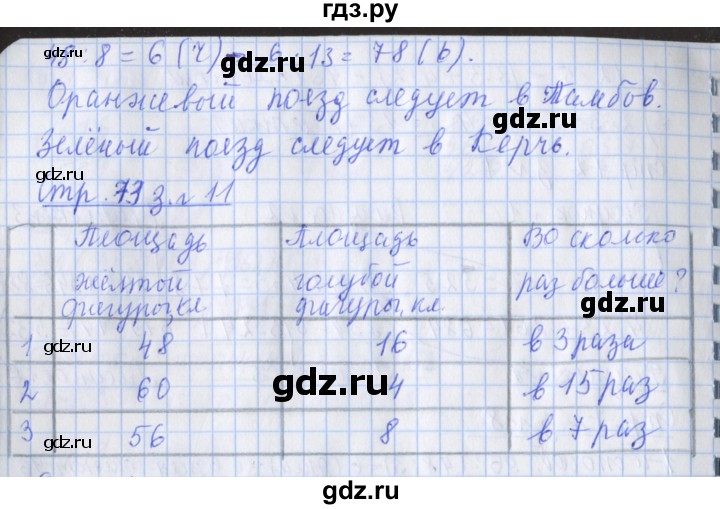 гдз.ру
: 8 = 6 (ч) 13 = 78 (
gdz.ru gdz.ru
Оранжевый поезд следует в Тамбов.
Зелёный поезд следует в Керчь.
gdz.ru gdz.ru
стр. 73 з. № 11
Площадь Площадь Во сколько
жёлтой голубой раз больше?
фигуры, кл фигуры, кл gdz.ru
1 48 16 в 3 раза
gdz.ru
2 60 4 в 15 раз
3 56 8 в 7 раз
gdz.ru gdz.ru
gdz.ru